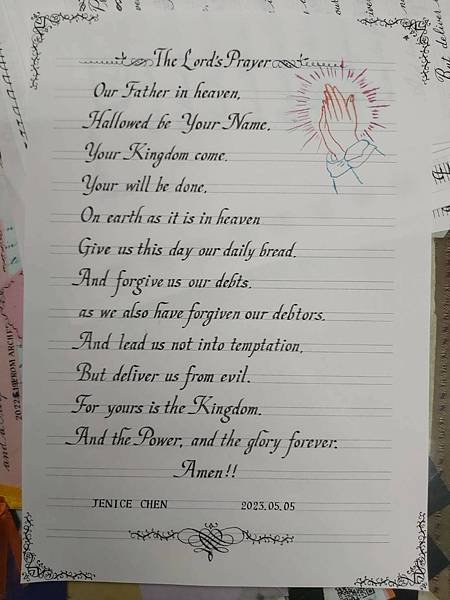 The Lord's Prayer
Our Father in heaven,
Hallowed be Your Name.
Your Kingdom come.
Your will be done,
On earth as it is in heaven
Give us this day our daily bread.
And forgive us our debts.
as we also have forgiven our debtors.
And lead us not into temptation,
But deliver us from evil.
For yours is the Kingdom.
And the Power, and the glory forever.
Amen!!
JENICE CHEN 2023.05.05
But deliver